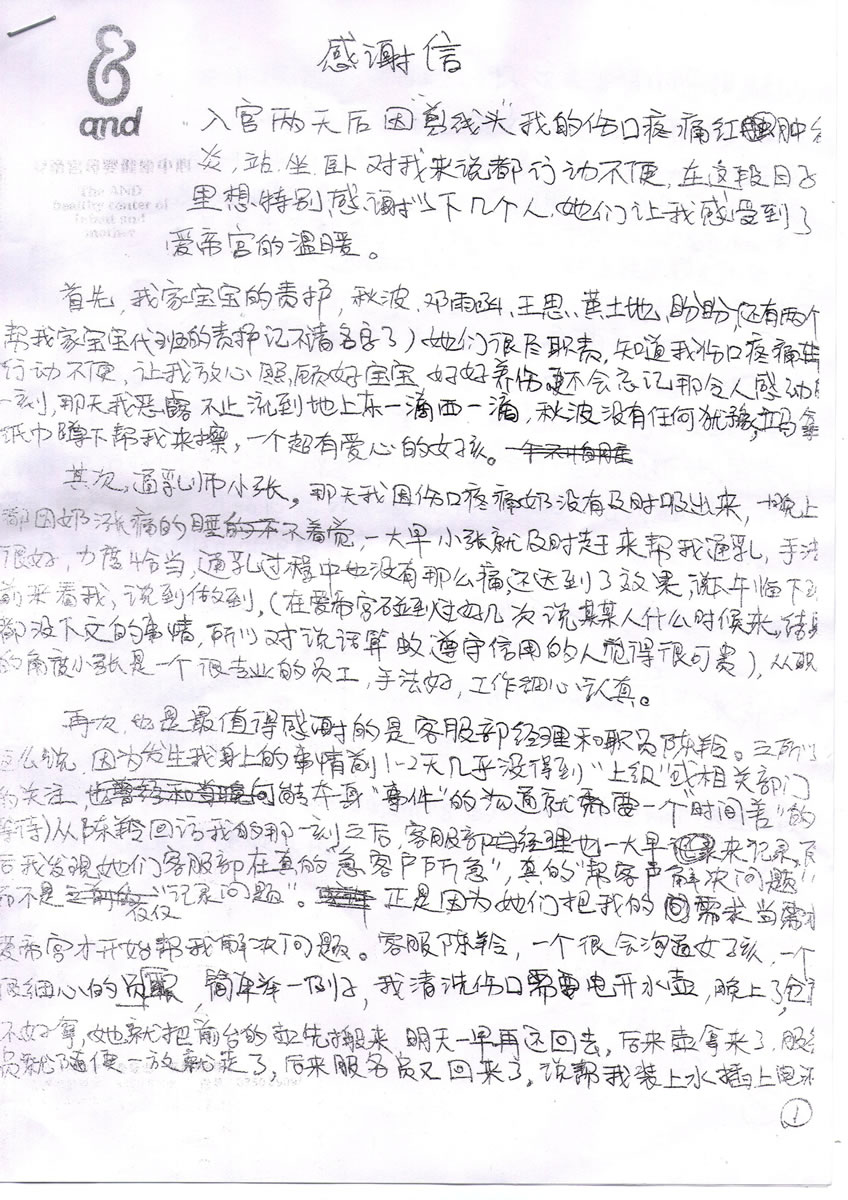 &
and
感谢信
入宫两天后因"剪线头"我的伤口疼痛红肿
炎,站.坐.卧对我来说都行动不便,在这段日子
里想特别感谢以下几个人,她们让我感受到了
爱帝宫的温暖。
The AND
healthy center of
infant and
mother
首先,我家宝宝的责护,秋波、邓雨函、王思、黄土地、盼盼,还有两个
帮我家宝宝代班的责护记不清名字了)她们很尽职责,知道我伤口疼痛
行动不便,让我放心照顾好宝宝 好好养伤更不会忘记那令人感动的
一刻,那天我恶露不止流到地上东一滴西一滴,秋波没有任何犹豫,立马拿
纸巾蹲下帮我来擦,一个超有爱心的女孩。
其次,通乳师小张,那天我因伤口疼痛奶没有及时吸出来,一晚上
都因奶涨痛的睡不着觉,一大早小张就及时赶来帮我通乳,手法
很好,力度恰当,通乳过程中也没有那么痛,还达到了效果,说下午临下
前来看我,说到做到,(在爱帝宫碰到过好几次说某某人什么时候来,结果
都没下文的事情,所以对说话算数遵守信用的人觉得很可贵),从职
的角度小张是一个很专业的员工,手法好,工作细心认真。
再次,也是最值得感谢的是客服部经理和职员陈羚。之所以
这么说,因为发生我身上的事情前1-2天几乎没得到"上级"或相关部门
的关注 "事件"的沟通就需要一个"时间差"的
等待)从陈羚回访我的那一刻之后,客服部经理也一大早来记录,
后我发现她们客服部在真的"急客户所急",真的"帮客户解决问题"
而不是仅仅"记录问题"。正是因为她们把我的需求当需求
爱帝宫才开始帮我解决问题。客服陈羚,一个很会沟通女孩,一个
很细心的,简单举一例子,我清洗伤口需要电开水壶,晚上了,
不好拿,她就把前台的壶先搬来,明天一早再还回去,后来壶拿来了,服务
员就随便一放就走了,后来服务员又回来了,说帮我装上水插上电
1